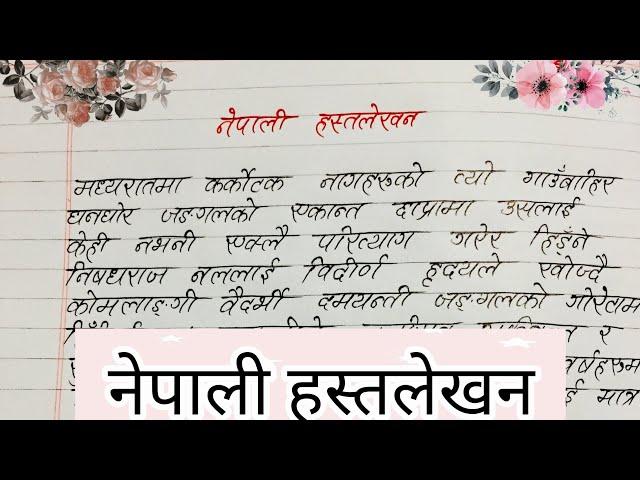 नेपाली हस्तलेखन
मध्यरातमा कर्कोटक नागहरुको त्यो गाउँबाहिर
घनघोर जङ्गलको एकान्त छाप्रामा उसलाई
केही नभनी एक्लै परित्याग गरेर हिड्ने
निषधराज नललाई विदीर्ण हृदयले खोज्दै
कोमलाङ्गी वैदर्भी दमयन्ती जङ्गलको गोरेटाम
र
र्षहरुम
नेपाली हस्तलेखन
ई मात्र